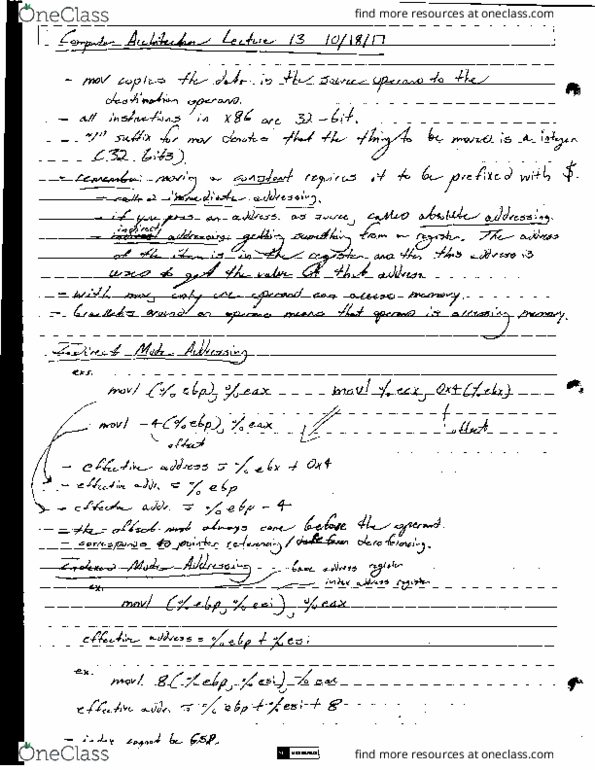 OneClass
find more resources at oneclass.com
Computer Architecture Lecture 13 10/18/17
- mov copies the data in the source operand to the
destination operand.
- all instructions in x86 are 32-bit.
"l" suffix for mov denotes that the thing to be moved is a integer
(32 bits).
- remember moving a constant requires it to be prefixed with $.
- called immediate addressing.
- if you pass an address as source, called absolute addressing.
- indirect addressing: getting something from a register. The address
of the item is in the register and then this address is
used to get the value at that address
- with mov, only one operand can access memory.
- brackets around an operand means that operand is accessing memory.
Indirect Mode Addressing
exs.
movl (%ebp), %eax movl %eax, 0x4(%ebx)
movl -4(%ebp), %eax
offset offset
- effective address = %ebx + 0x4
- effective addr. = %ebp
- effective addr. = %ebp - 4
- the offset must always come before the operand.
- corresponds to pointer referencing/ dereferencing.
Indexed Mode Addressing
base address register
index address register
ex.
movl (%ebp, %esi), %eax
effective address = %ebp + %esi
ex.
movl 8(%ebp, %esi), %eax
effective addr. = %ebp + %esi + 8
- index cannot be ESP.
OneClass
find more resources at oneclass.com